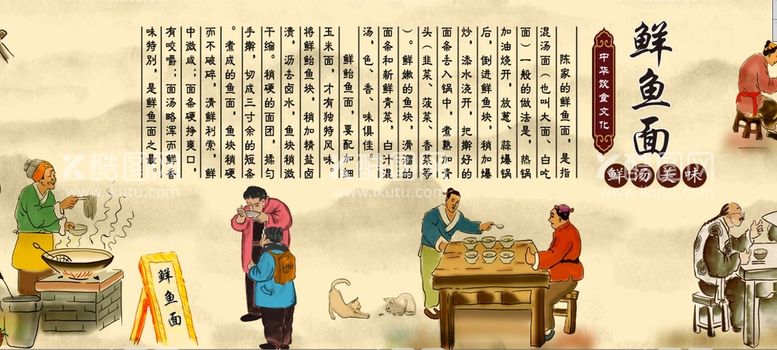 鲜鱼面
中华饮食文化
鲜汤美味
陈家的鲜鱼面，是指
混汤面（也叫大面、白吃
面）一般的做法是，热锅
加油烧开，放葱、蒜爆锅
后，倒进鲜鱼块，稍加爆
炒，添水浇开，把擀好的
面条丢入锅中，煮熟加青
头（韭菜、菠菜、香菜等
）。鲜嫩的鱼块，滑溜的
面条和新鲜青菜，白汁混
汤，色、香、味俱佳。
鲜鲐鱼面，要配细
玉米面，才有独特风味。
将鲜鲐鱼块，稍加精盐卤
渍，沥去卤水，鱼块稍微
干缩。稍硬的面团，揉匀
手擀，切成三寸余的短条
。煮成的鱼面，鱼块稍硬
而不破碎，清鲜利索，鲜
中激咸；面条硬挣爽口，
有咬嚼；面汤略浑而鲜香
味特别，是鲜鱼面之最。
鲜鱼面